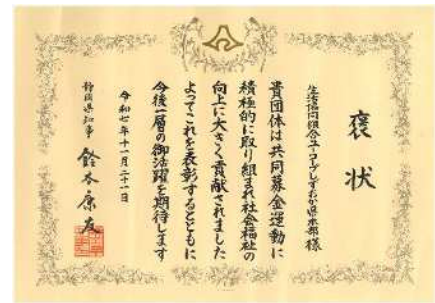 褒状
生活協同組合ユーコープしずおか県本部様
貴団体は共同募金運動に
積極的に取り組まれ社会福祉の
向上に大きく貢献されました
よってこれを表彰するとともに
今後一層の御活躍を期待します
令和七年十一月二十一日
静岡県知事 鈴木康友